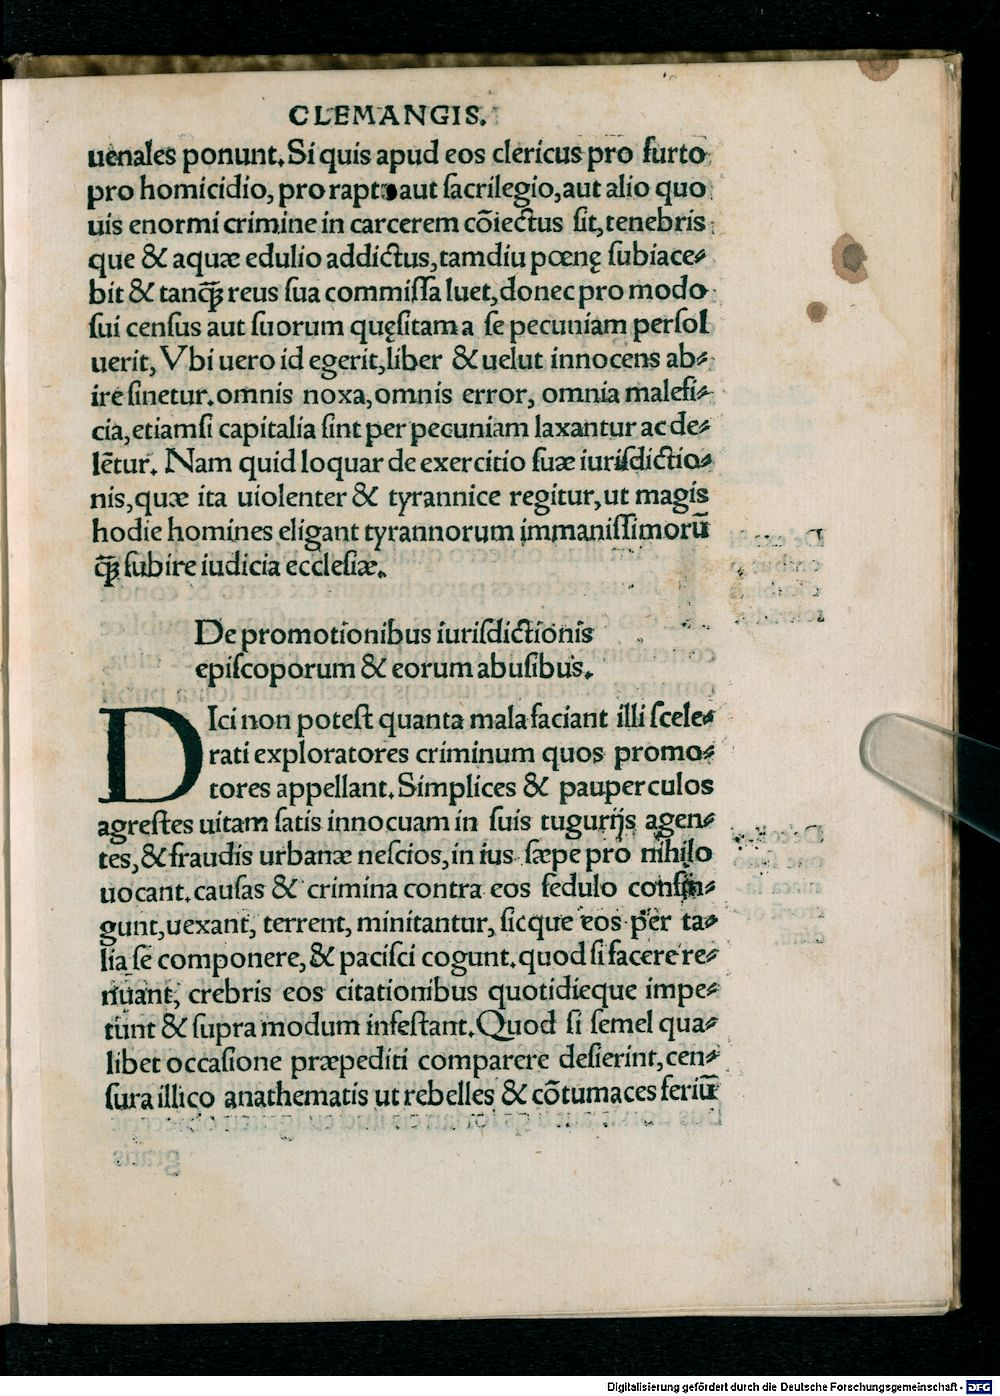 CLEMANGIS.
uenales ponunt. Si quis apud eos clericus pro furto
pro homicidio, pro rapto aut sacrilegio, aut alio quo
uis enormi crimine in carcerem cōiectus sit, tenebris
que & aquæ edulio addictus, tamdiu pœnę subiace⸗
bit & tanꝗ̄ reus sua commissa luet, donec pro modo
sui census aut suorum quęsitam a se pecuniam persol
uerit, Vbi uero id egerit, liber & uelut innocens ab⸗
ire sinetur. omnis noxa, omnis error, omnia malefi⸗
cia, etiamsi capitalia sint per pecuniam laxantur ac de⸗
lētur. Nam quid loquar de exercitio suæ iurisdictio⸗
nis, quæ ita uiolenter & tyrannice regitur, ut magis
hodie homines eligant tyrannorum immanissimorū
ꝗ̄ subire iudicia ecclesiæ.
De promotionibus iurisdictionis
episcoporum & eorum abusibus.
DIci non potest quanta mala faciant illi scele⸗
rati exploratores criminum quos promo⸗
tores appellant. Simplices & pauperculos
agrestes uitam satis innocuam in suis tugurijs agen⸗
tes, & fraudis urbanæ nescios, in ius sæpe pro nihilo
uocant. causas & crimina contra eos sedulo confin⸗
gunt, uexant, terrent, minitantur, sicque eos per ta⸗
lia se componere, & pacisci cogunt. quod si facere re⸗
nuant, crebris eos citationibus quotidieque impe⸗
tunt & supra modum infestant. Quod si semel qua⸗
libet occasione præpediti comparere desierint, cen⸗
sura illico anathematis ut rebelles & cōtumaces feriū
Digitalisierung gefördert durch die Deutsche Forschungsgemeinschaft - DFG